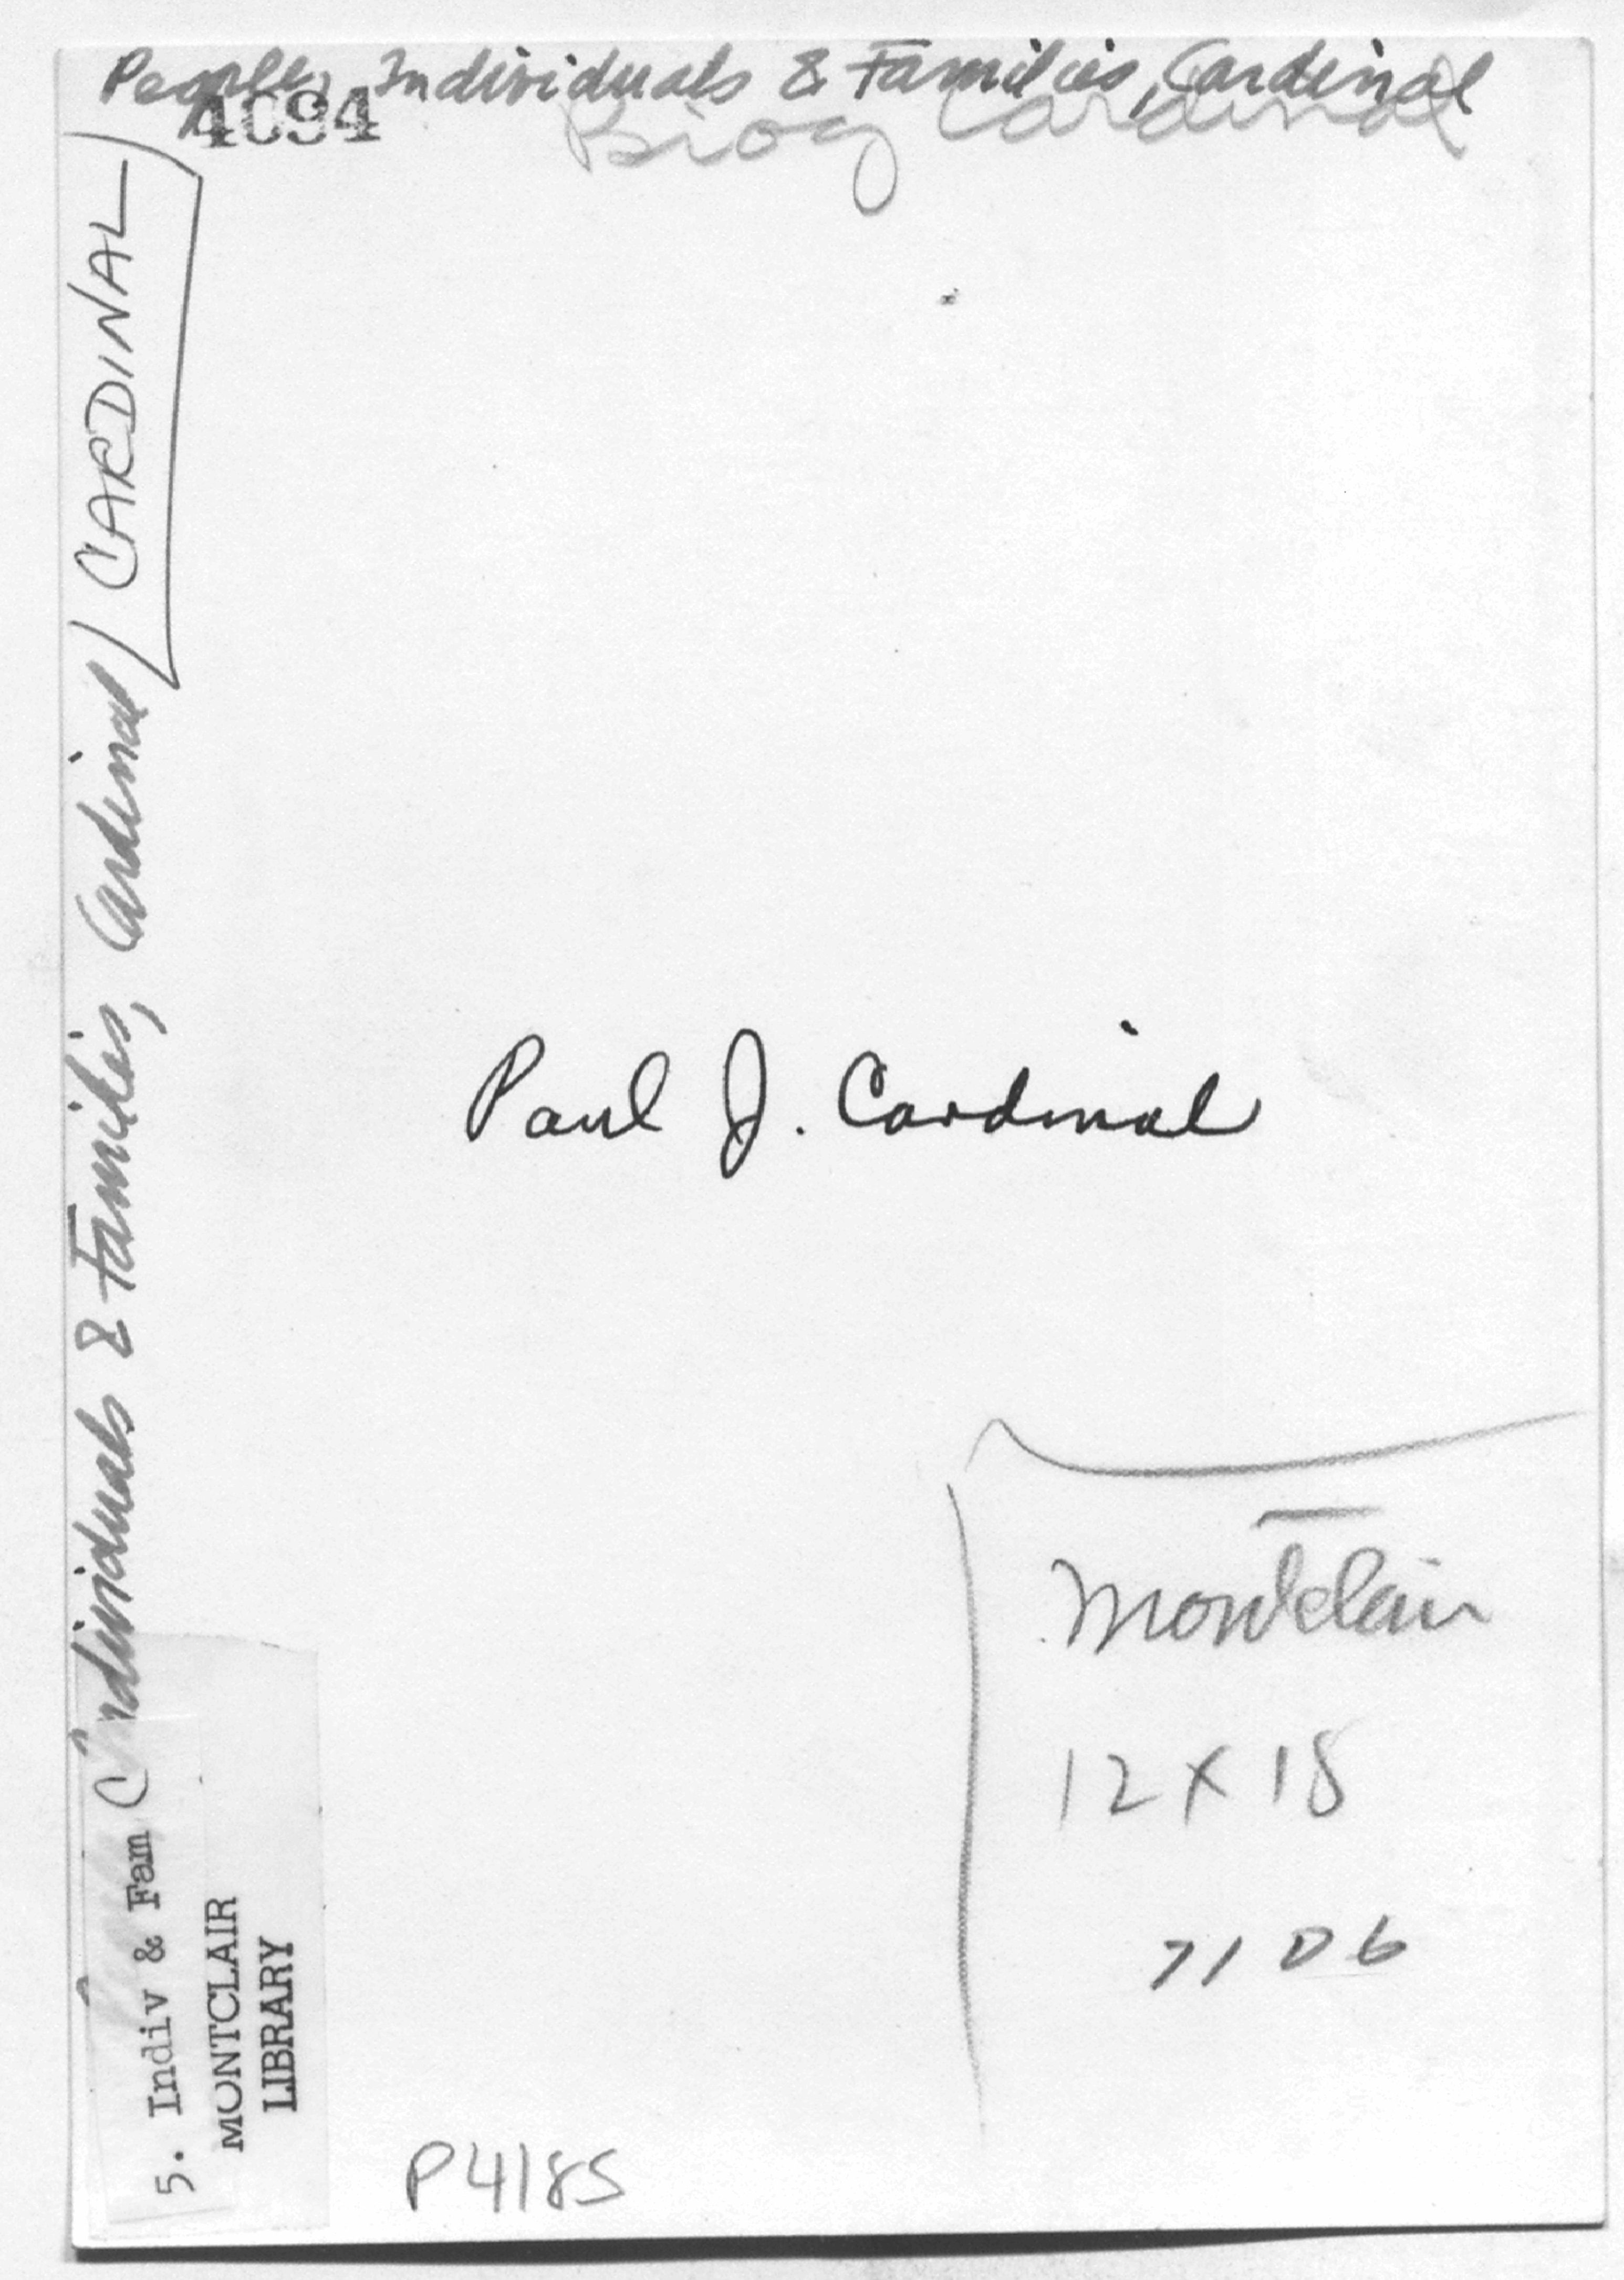 People, Individuals & Families, Cardinal
4094
Biog Cardinal
CARDINAL
Individuals & Families, Cardinal
Paul J. Cardinal
Montclair
12 X 18
71 D 6
5. Indiv & Fam C
MONTCLAIR
LIBRARY
P4185